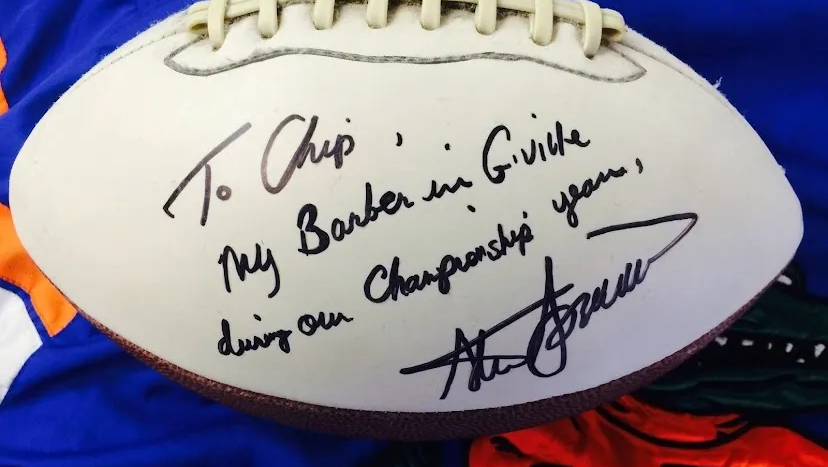 To Chip,
My Barber in G'ville
during our Championship years,